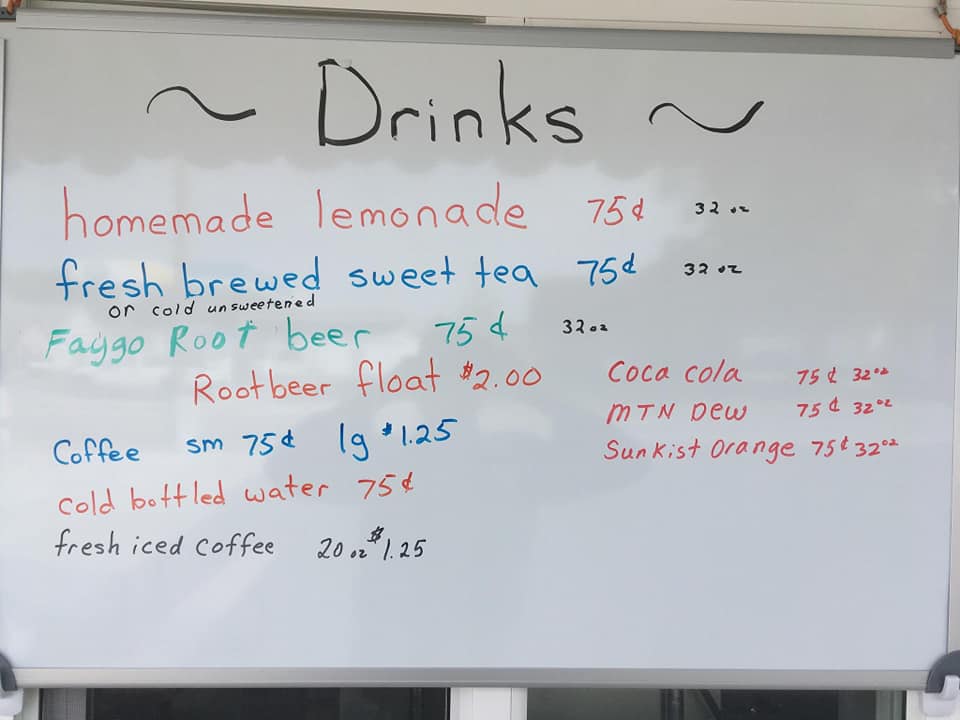 ~ Drinks ~
homemade lemonade 75¢ 32 oz
fresh brewed sweet tea 75¢ 32 oz
or cold unsweetened
Faygo Root beer 75¢ 32oz
Rootbeer float $2.00
Coffee sm 75¢ lg $1.25
cold bottled water 75¢
fresh iced coffee 20 oz $1.25
Coca cola 75¢ 32oz
MTN Dew 75¢ 32oz
Sunkist Orange 75¢ 32oz